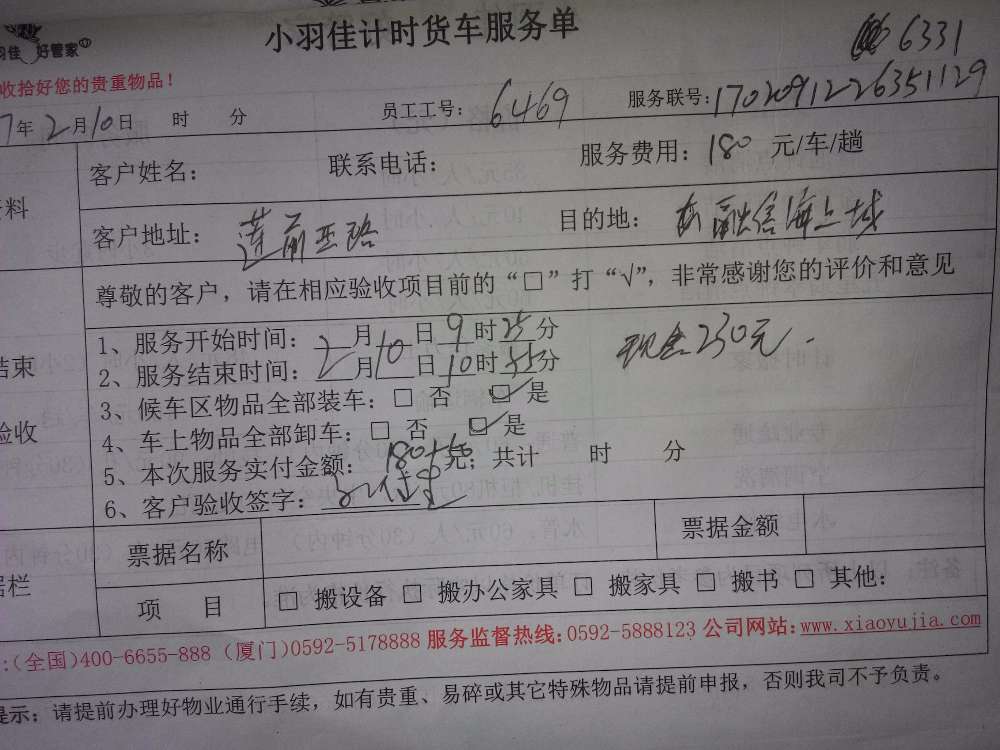 小羽佳计时货车服务单
羽佳 好管家
6331
收拾好您的贵重物品！
7年2月10日 时 分 员工工号：6469 服务联号：1702091226351129
客户姓名： 联系电话： 服务费用：180 元/车/趟
资料
客户地址：莲前西路 目的地：融信海上城
尊敬的客户，请在相应验收项目前的“□”打“√”，非常感谢您的评价和意见
1、服务开始时间：2月10日9时25分 现金230元.
结束
2、服务结束时间：2月10日10时55分
3、候车区物品全部装车：□ 否 ☑ 是
验收
4、车上物品全部卸车：□ 否 ☑ 是
5、本次服务实付金额：180+50元；共计 时 分
6、客户验收签字：
票据名称 票据金额
据栏
项 目 □ 搬设备 □ 搬办公家具 □ 搬家具 □ 搬书 □ 其他：
:(全国)400-6655-888 (厦门)0592-5178888 服务监督热线:0592-5888123 公司网站:www.xiaoyujia.com
提示：请提前办理好物业通行手续，如有贵重、易碎或其它特殊物品请提前申报，否则我司不予负责。